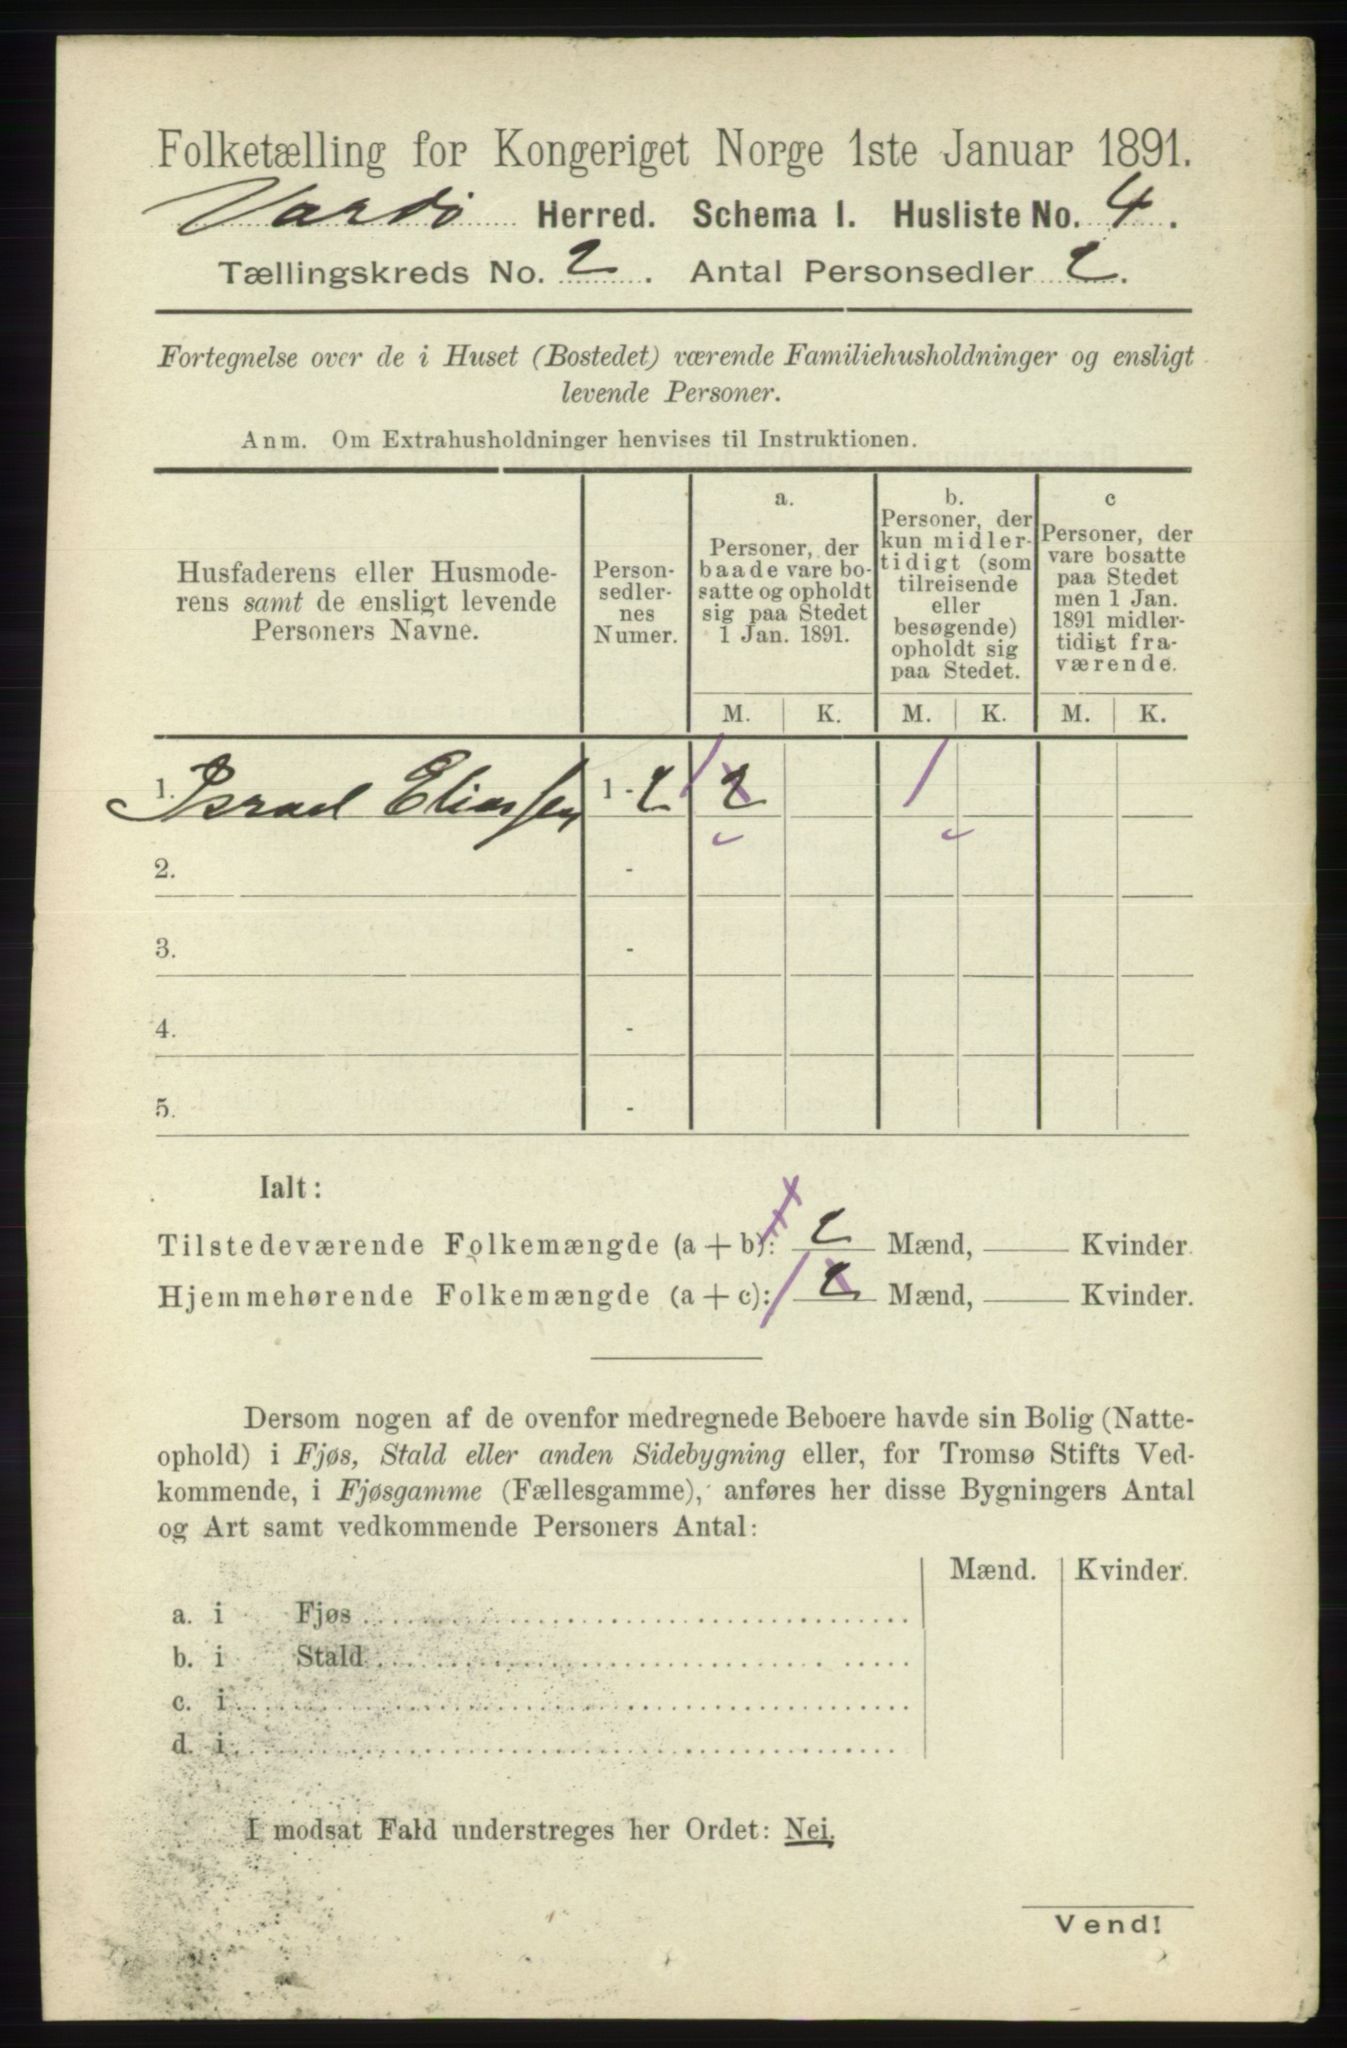 Folketælling for Kongeriget Norge 1ste Januar 1891.
Vardø Herred. Schema 1. Husliste No. 4.
Tællingskreds No. 2. Antal Personsedler 2.
Fortegnelse over de i Huset (Bostedet) værende Familiehusholdninger og ensligt
levende Personer.
Anm. Om Extrahusholdninger henvises til Instruktionen.
Husfaderens eller Husmode-
rens samt de ensligt levende
Personers Navne.
Person-
sedler-
nes
Numer.
a.
Personer, der
baade vare bo-
satte og opholdt
sig paa Stedet
1 Jan. 1891.
b.
Personer, der
kun midler-
tidigt (som
tilreisende
eller
besøgende)
opholdt sig
paa Stedet.
c
Personer, der
vare bosatte
paa Stedet
men 1 Jan.
1891 midler-
tidigt fra-
værende.
M. K. M. K. M. K.
1. Israel Eliassen 1-2 1 2 1
2. -
3. -
4. -
5. -
Ialt:
Tilstedeværende Folkemængde (a + b): 2 Mænd, Kvinder.
Hjemmehørende Folkemængde (a + c): 1 2 Mænd, Kvinder.
Dersom nogen af de ovenfor medregnede Beboere havde sin Bolig (Natte-
ophold) i Fjøs, Stald eller anden Sidebygning eller, for Tromsø Stifts Ved-
kommende, i Fjøsgamme (Fællesgamme), anføres her disse Bygningers Antal
og Art samt vedkommende Personers Antal:
Mænd. Kvinder.
a. i Fjøs
b. i Stald
c. i
d. i
I modsat Fald understreges her Ordet: Nei.
Vend!